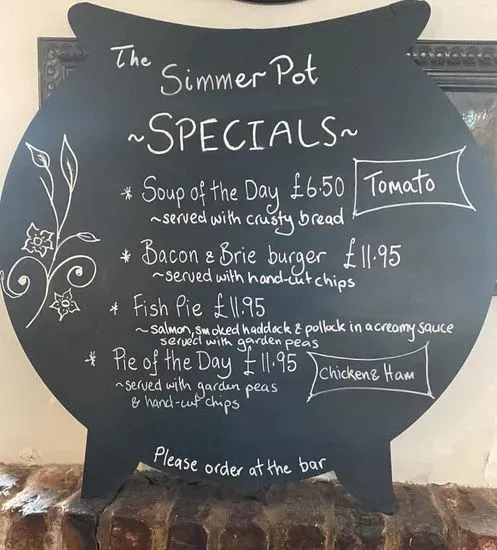 The
Simmer Pot
~SPECIALS~
* Soup of the Day £6.50
Tomato
~served with crusty bread
* Bacon & Brie burger £11.95
~served with hand-cut chips
* Fish Pie £11.95
~salmon, smoked haddock & pollock in a creamy sauce
served with garden peas
* Pie of the Day £11.95
Chicken & Ham
~served with garden peas
& hand-cut chips
Please order at the bar